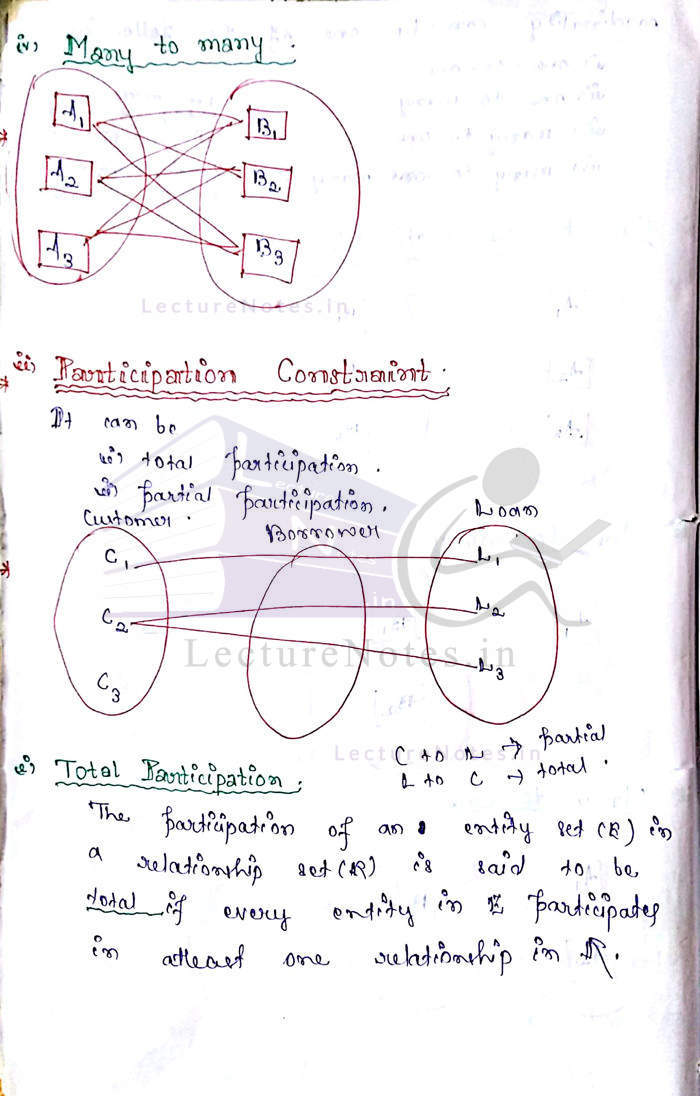 iv) Many to many.
A1
B1
A2
B2
A3
B3
LectureNotes.in
ii) Participation Constraint.
It can be
i) total participation.
ii) partial participation.
Customer.
Borrower
Loan
C1
L1
C2
L2
in
LectureNotes.in
C3
L3
LectureNotes.in
C to L → partial
L to C → total.
i) Total Participation.
The participation of an entity set (E) in
a relationship set (R) is said to be
total if every entity in E participates
in atleast one relationship in R.